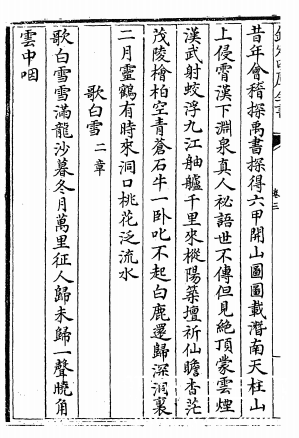 昔年會稽探禹書探得六甲開山圖圖載潛南天柱山
上侵霄漢下淵泉真人祕語世不傳但見絶頂蒙雲煙
漢武射蛟浮九江舳艫千里來樅陽築壇祈仙瞻杳茫
茂陵檜柏空青蒼石牛一卧叱不起白鹿還歸深洞裏
二月靈鶴有時來洞口桃花泛流水
歌白雪二章
歌白雪雪滿龍沙暮冬月萬里征人歸未歸一聲曉角
雲中咽